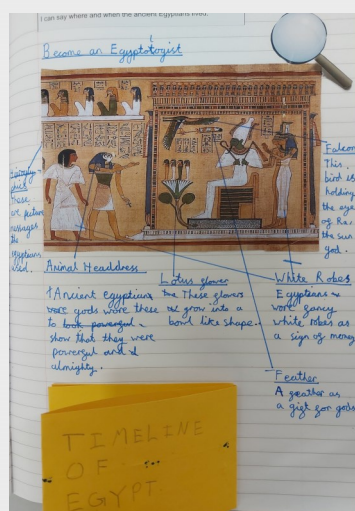 I can say where and when the ancient Egyptians lived.
Become an Egyptologist
Falcon
This
bird is
holding
the eye
of Ra.
the sun
god.
these
are picture
messages
the
egyptians
used.
Animal Headdress
Ancient egyptians
gods wore these
to look powerful
show that they were
powerful and
almighty.
Lotus flower
These flowers
grow into a
bowl like shape.
White Robes
Egyptians
wore fancy
white robes as
a sign of money
Feather
A feather as
a gift for gods
TIMELINE
OF
EGYPT